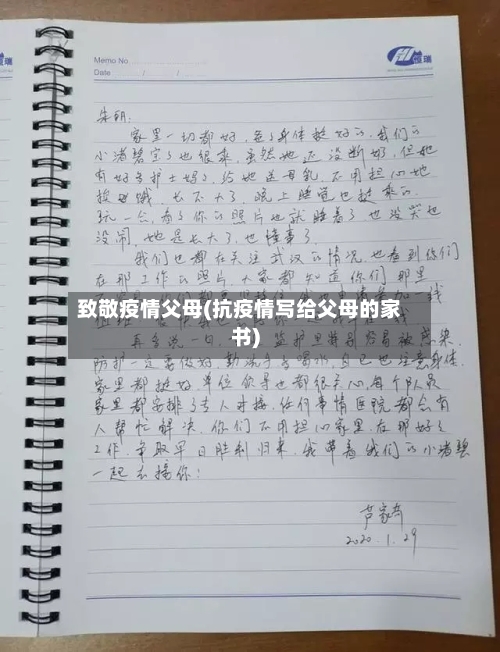 Memo No
Date / /
恒瑞
朱明：
家里一切都好，爸爸身体挺好的，我们的
小诺碧宝宝也很乖，虽然她还没断奶，但她
有好多护士妈妈给她送母乳，不用担心她
挨饿哦，长不大了，晚上睡觉也挺乖的，
玩一会，看看你的照片也就睡着了，也没哭也
没闹，她是长大了，也懂事了
我们也都在关注武汉的情况，也看到你们
在那工作的照片，大家都知道你们那里
致敬疫情父母(抗疫情写给父母的家
书)
再多说一句，监护里特别容易被感染，
防护一定要做好，勤洗手多喝水，自己也注意身体，
家里都挺好，单位领导也都很关心，每个队员
家里都安排了专人对接，任何事情医院都会有
人帮忙解决，你们不用担心家里，在那好好
工作，争取早日胜利归来，我带着我们的小诺碧
一起去接你！
2020.1.29